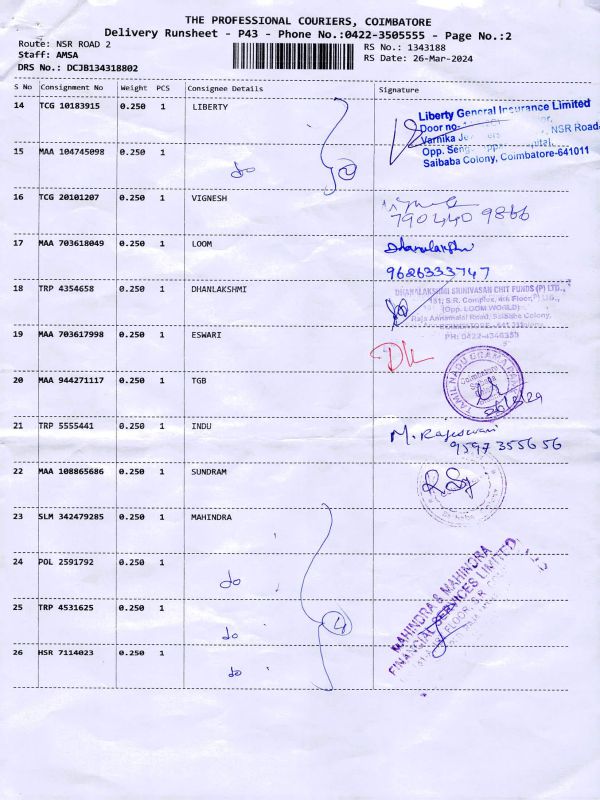 THE PROFESSIONAL COURIERS, COIMBATORE
Delivery Runsheet - P43 - Phone No.:0422-3505555 - Page No.:2
Route: NSR ROAD 2
Staff: AMSA
DRS No.: DCJB134318802
RS No.: 1343188
RS Date: 26-Mar-2024
S No Consignment No Weight PCS Consignee Details Signature
14 TCG 10183915 0.250 1 LIBERTY
Liberty General Insurance Limited
Door no-
Varnika NSR Road-
Opp.
Saibaba Colony, Coimbatore-641011
15 MAA 104745098 0.250 1 do 2
16 TCG 20101207 0.250 1 VIGNESH
790440 9866
17 MAA 703618049 0.250 1 LOOM
Dhanalakshmi
9626333747
18 TRP 4354658 0.250 1 DHANLAKSHMI
DHANALAKSHMI SRINIVASAN CHIT FUNDS (P) LTD.,
151, S.R. Complex, 4th Floor,
(Opp. LOOM WORLD)
Raja Annamalai Road, Saibaba Colony,
PH: 0422-4346353
19 MAA 703617998 0.250 1 ESWARI
20 MAA 944271117 0.250 1 TGB
TAMIL NADU GRAMA BANK
Coimbatore
Saibaba
21 TRP 5555441 0.250 1 INDU
M. Rajeswari
9597 355656
22 MAA 108865686 0.250 1 SUNDRAM
23 SLM 342479285 0.250 1 MAHINDRA
24 POL 2591792 0.250 1 do
MAHINDRA & MAHINDRA
FINANCIAL SERVICES LIMITED
25 TRP 4531625 0.250 1 do 4
26 HSR 7114023 0.250 1 do